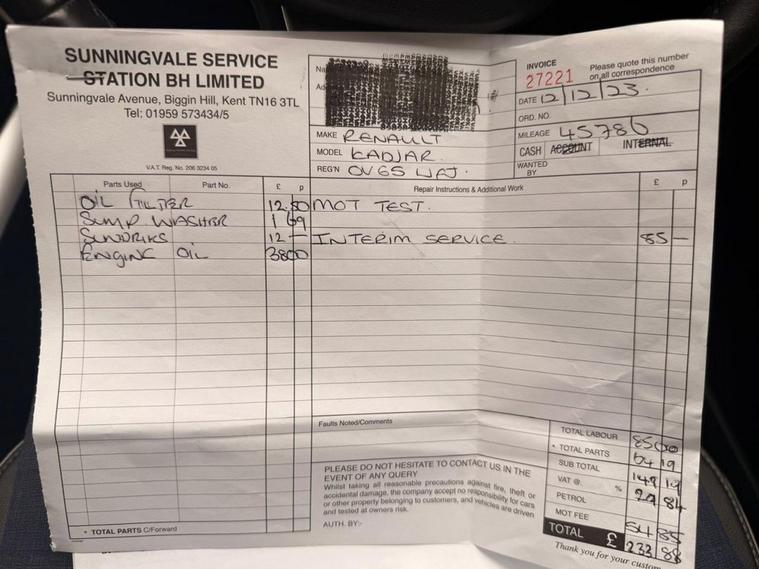 SUNNINGVALE SERVICE
STATION BH LIMITED
Sunningvale Avenue, Biggin Hill, Kent TN16 3TL
Tel: 01959 573434/5
V.A.T. Reg. No. 206 3234 05
INVOICE
27221
Please quote this number
on all correspondence
DATE 12/12/23.
ORD. NO.
MAKE RENAULT
MILEAGE 45786
MODEL KADJAR.
CASH ACCOUNT INTERNAL
REG'N OV65 UAJ.
WANTED
BY
Parts Used Part No. £ p Repair Instructions & Additional Work £ p
OIL FILTER 12.50 MOT TEST.
SUMP WASHER 1 69
SUNDRIES 12 — INTERIM SERVICE. 85 —
ENGINE OIL 3800
Faults Noted/Comments
TOTAL LABOUR 85 00
* TOTAL PARTS 64 19
SUB TOTAL 149 19
VAT @ % 29 84
PETROL
MOT FEE 54 85
TOTAL £ 233 88
PLEASE DO NOT HESITATE TO CONTACT US IN THE
EVENT OF ANY QUERY
Whilst taking all reasonable precautions against fire, theft or
accidental damage, the company accept no responsibility for cars
or other property belonging to customers, and vehicles are driven
and tested at owners risk.
AUTH. BY:-
* TOTAL PARTS C/Forward
Thank you for your custom